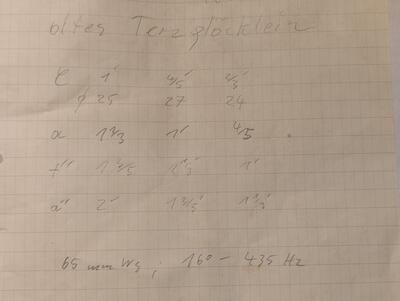 altes Terzglöcklein
C 1' 4/5' 2/3'
ø 25 27 24
a 1 1/3 1' 4/5
1 3/5 1 1/3' 1'
2' 1 3/5' 1 1/3'
65 mm Ws ; 16° - 435 Hz